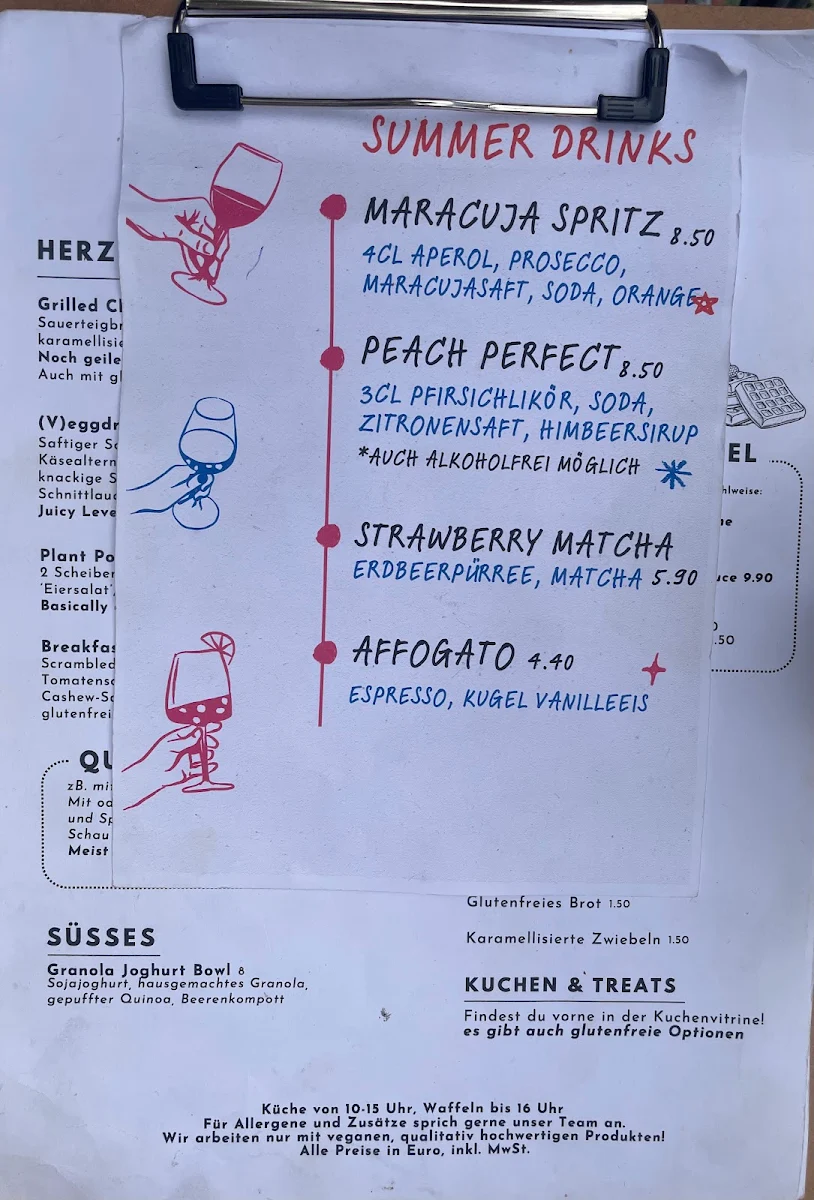 SUMMER DRINKS
MARACUJA SPRITZ 8.50
4CL APEROL, PROSECCO,
MARACUJASAFT, SODA, ORANGE
PEACH PERFECT 8.50
3CL PFIRSICHLIKÖR, SODA,
ZITRONENSAFT, HIMBEERSIRUP
*AUCH ALKOHOLFREI MÖGLICH
STRAWBERRY MATCHA
ERDBEERPÜRREE, MATCHA 5.90
AFFOGATO 4.40
ESPRESSO, KUGEL VANILLEEIS
HERZ
Grilled
Sauerteigb
karamellisie
Noch geile
Auch mit
(V)eggd
Saftiger
Käsealtern
knackige
Schnittlau
Juicy Leve
Plant Po
2 Scheiben
'Eiersalat'
Basically
Breakfas
Scrambled
Tomatens
Cashew-S
glutenfrei
QU
zB. mi
Mit od
und Sp
Schau
Meist
EL
hlweise:
ne
uce 9.90
.50
SÜSSES
Granola Joghurt Bowl 8
Sojajoghurt, hausgemachtes Granola,
gepuffter Quinoa, Beerenkompott
Glutenfreies Brot 1.50
Karamellisierte Zwiebeln 1.50
KUCHEN & TREATS
Findest du vorne in der Kuchenvitrine!
es gibt auch glutenfreie Optionen
Küche von 10-15 Uhr, Waffeln bis 16 Uhr
Für Allergene und Zusätze sprich gerne unser Team an.
Wir arbeiten nur mit veganen, qualitativ hochwertigen Produkten!
Alle Preise in Euro, inkl. MwSt.